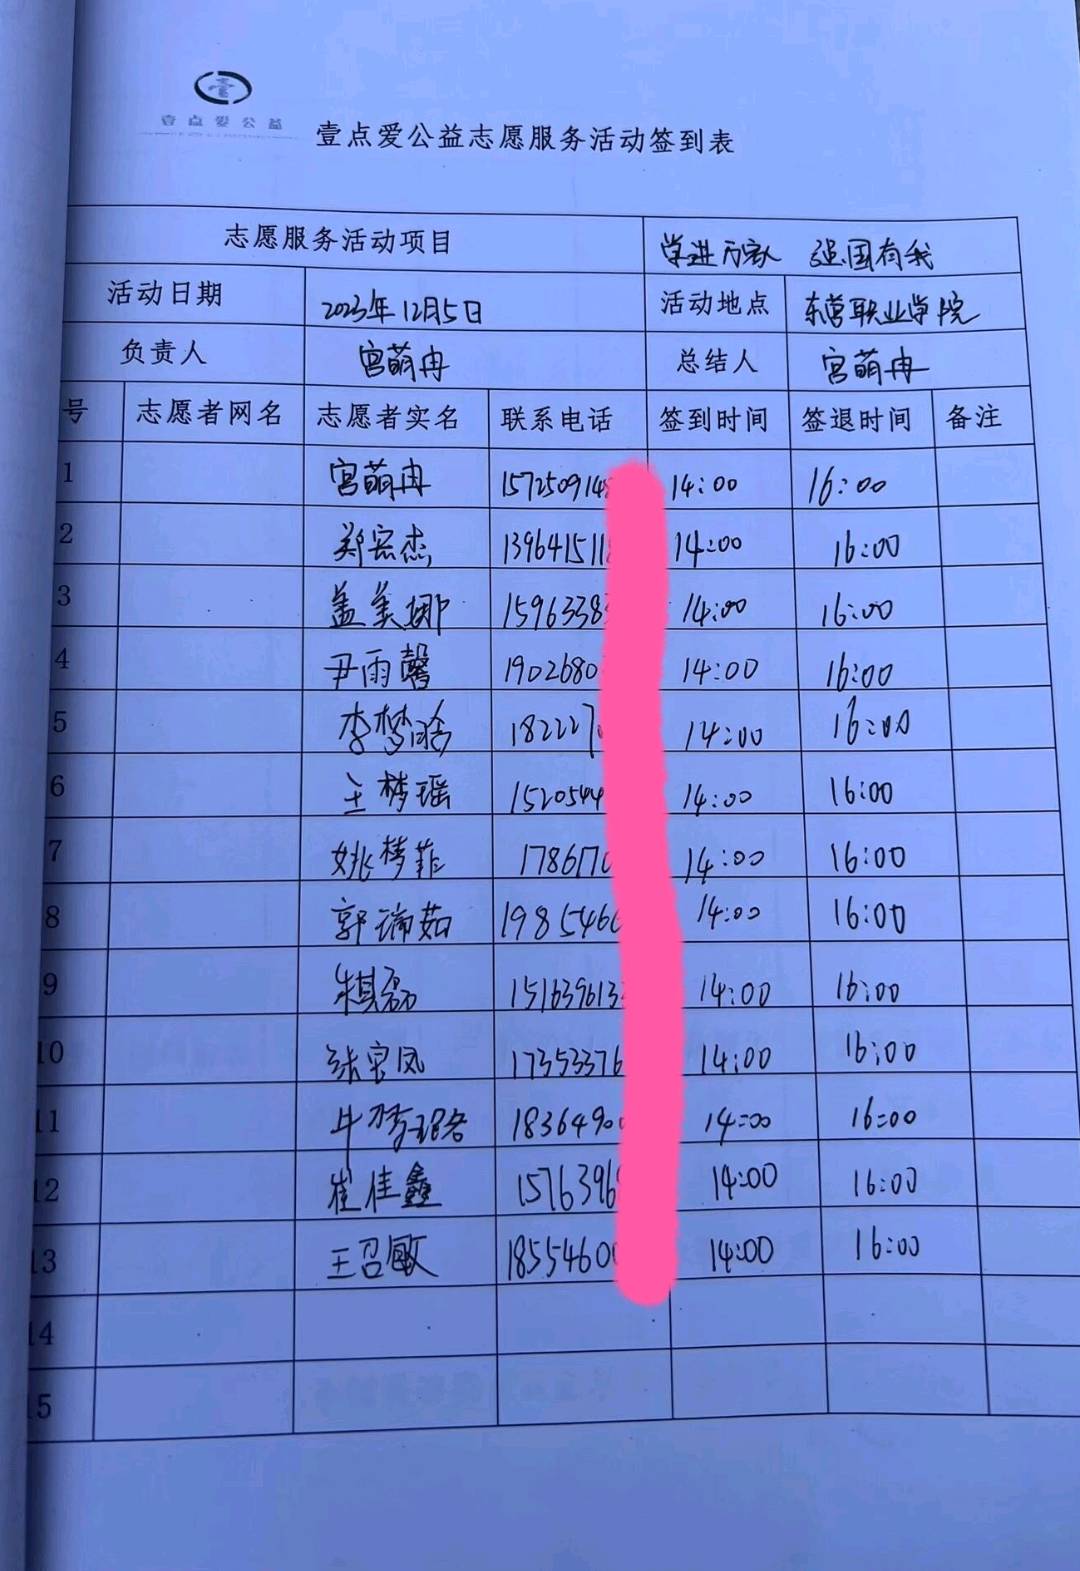 壹点爱公益
壹点爱公益志愿服务活动签到表
志愿服务活动项目 学进万家 强国有我
活动日期 2023年12月5日 活动地点 东营职业学院
负责人 宫萌冉 总结人 宫萌冉
号 志愿者网名 志愿者实名 联系电话 签到时间 签退时间 备注
1 宫萌冉 157250914 14:00 16:00
2 郑宏杰 139641511 14:00 16:00
3 盖美娜 1596338 14:00 16:00
4 尹雨馨 1902680 14:00 16:00
5 李梦晗 182227 14:00 16:00
6 王梦瑶 1520544 14:00 16:00
7 姚梦菲 178617 14:00 16:00
8 郭瑞茹 1985466 14:00 16:00
9 朱其磊 151639613 14:00 16:00
10 张官凤 17353376 14:00 16:00
11 牛梦璐 1836490 14:00 16:00
12 崔佳鑫 1576396 14:00 16:00
13 王召敏 18554600 14:00 16:00
14
15